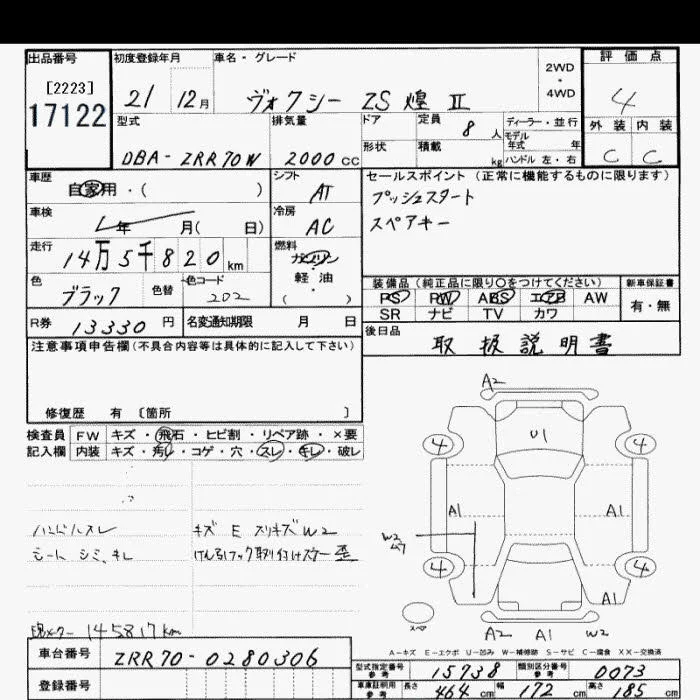 出品番号 初度登録年月 車名・グレード 評価点
[2223]
17122
21 12月 ヴォクシー ZS 煌 Ⅱ 2WD・4WD 4
型式 排気量 ドア 定員 8 人 ディーラー・並行 外装 内装
DBA-ZRR70W 2000cc 形状 積載 kg モデル年式 年 ハンドル 左・右 C C
車歴 自家用・( ) シフト AT セールスポイント (正常に機能するものに限ります)
プッシュスタート
車検 年 月( 日) 冷房 AC スペアキー
走行 14万5千820km 燃料 ガソリン・軽油 ( )
色 ブラック 色替 色コード 202 装備品 (純正品に限り○をつけてください) 新車保証書
PS PW ABS エアB AW 有・無
SR ナビ TV カワ
R券 13330円 名変通知期限 月 日 後日品 取扱説明書
注意事項申告欄 (不具合内容等は具体的に記入して下さい)
修復歴 有 〔箇所 〕
検査員 FW キズ・飛石・ヒビ割・リペア跡・×要
記入欄 内装 キズ・汚れ・コゲ・穴・スレ・キレ・破レ
ハンドルスレ キズ E スリキズ W2
シート シミ、キレ けん引フック取り付けステー歪
現メーター 145817km
A2
U1
4 4
A1 A1
W2
ムラ
4 4
A1
スペア A2 A1 W2
A-キズ E-エクボ U-凹み W-補修跡 S-サビ C-腐食 XX-交換済
車台番号 ZRR70-0280306
型式指定番号 15738 類別区分番号 0073
登録番号 車庫証明用参考 長さ 464cm 幅 172cm 高さ 185cm